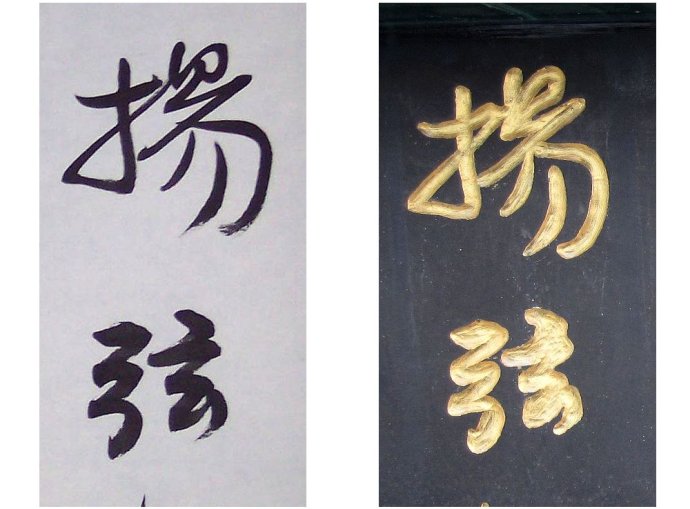 揚弦
揚弦